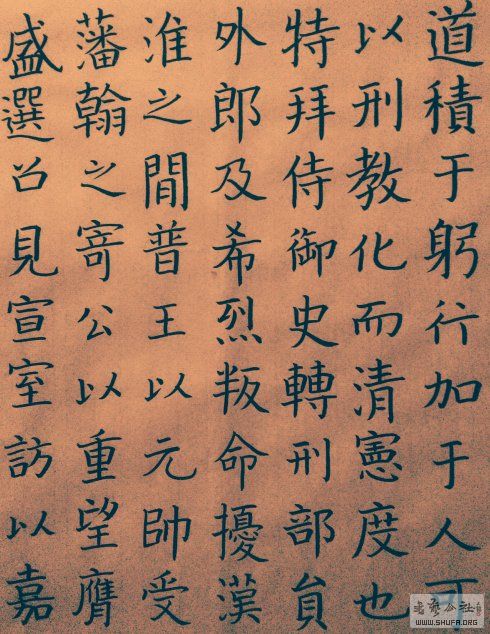 道積于躬行加于人可
以刑教化而清憲度也
特拜侍御史轉刑部貟
外郎及希烈叛命擾漢
淮之間普王以元帥受
藩翰之寄公以重望膺
盛選召見宣室訪以嘉
书艺公社
WWW.SHUFA.ORG